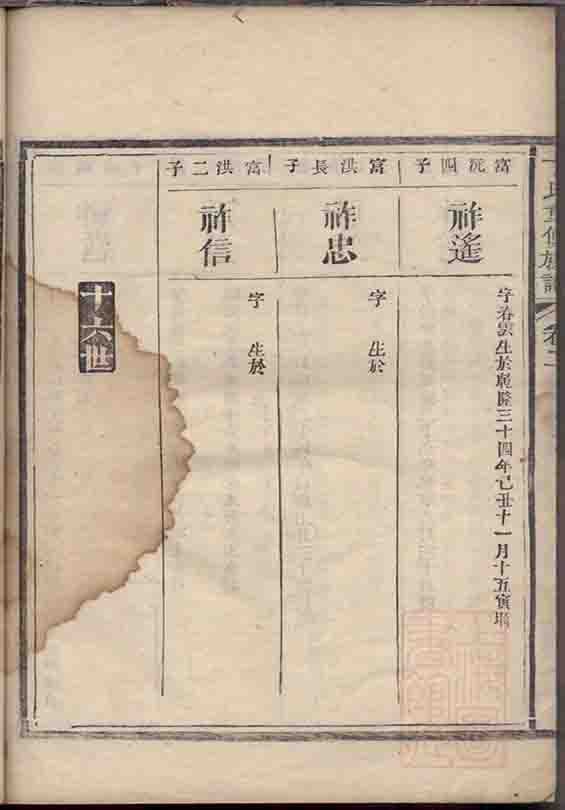 氏重修族譜 卷二
富沅四子
祚遙
字春雲生於乾隆三十四年己丑十一月十五寅
富洪長子
祚忠
字 生於
富洪二子
祚信
字 生於
十六世